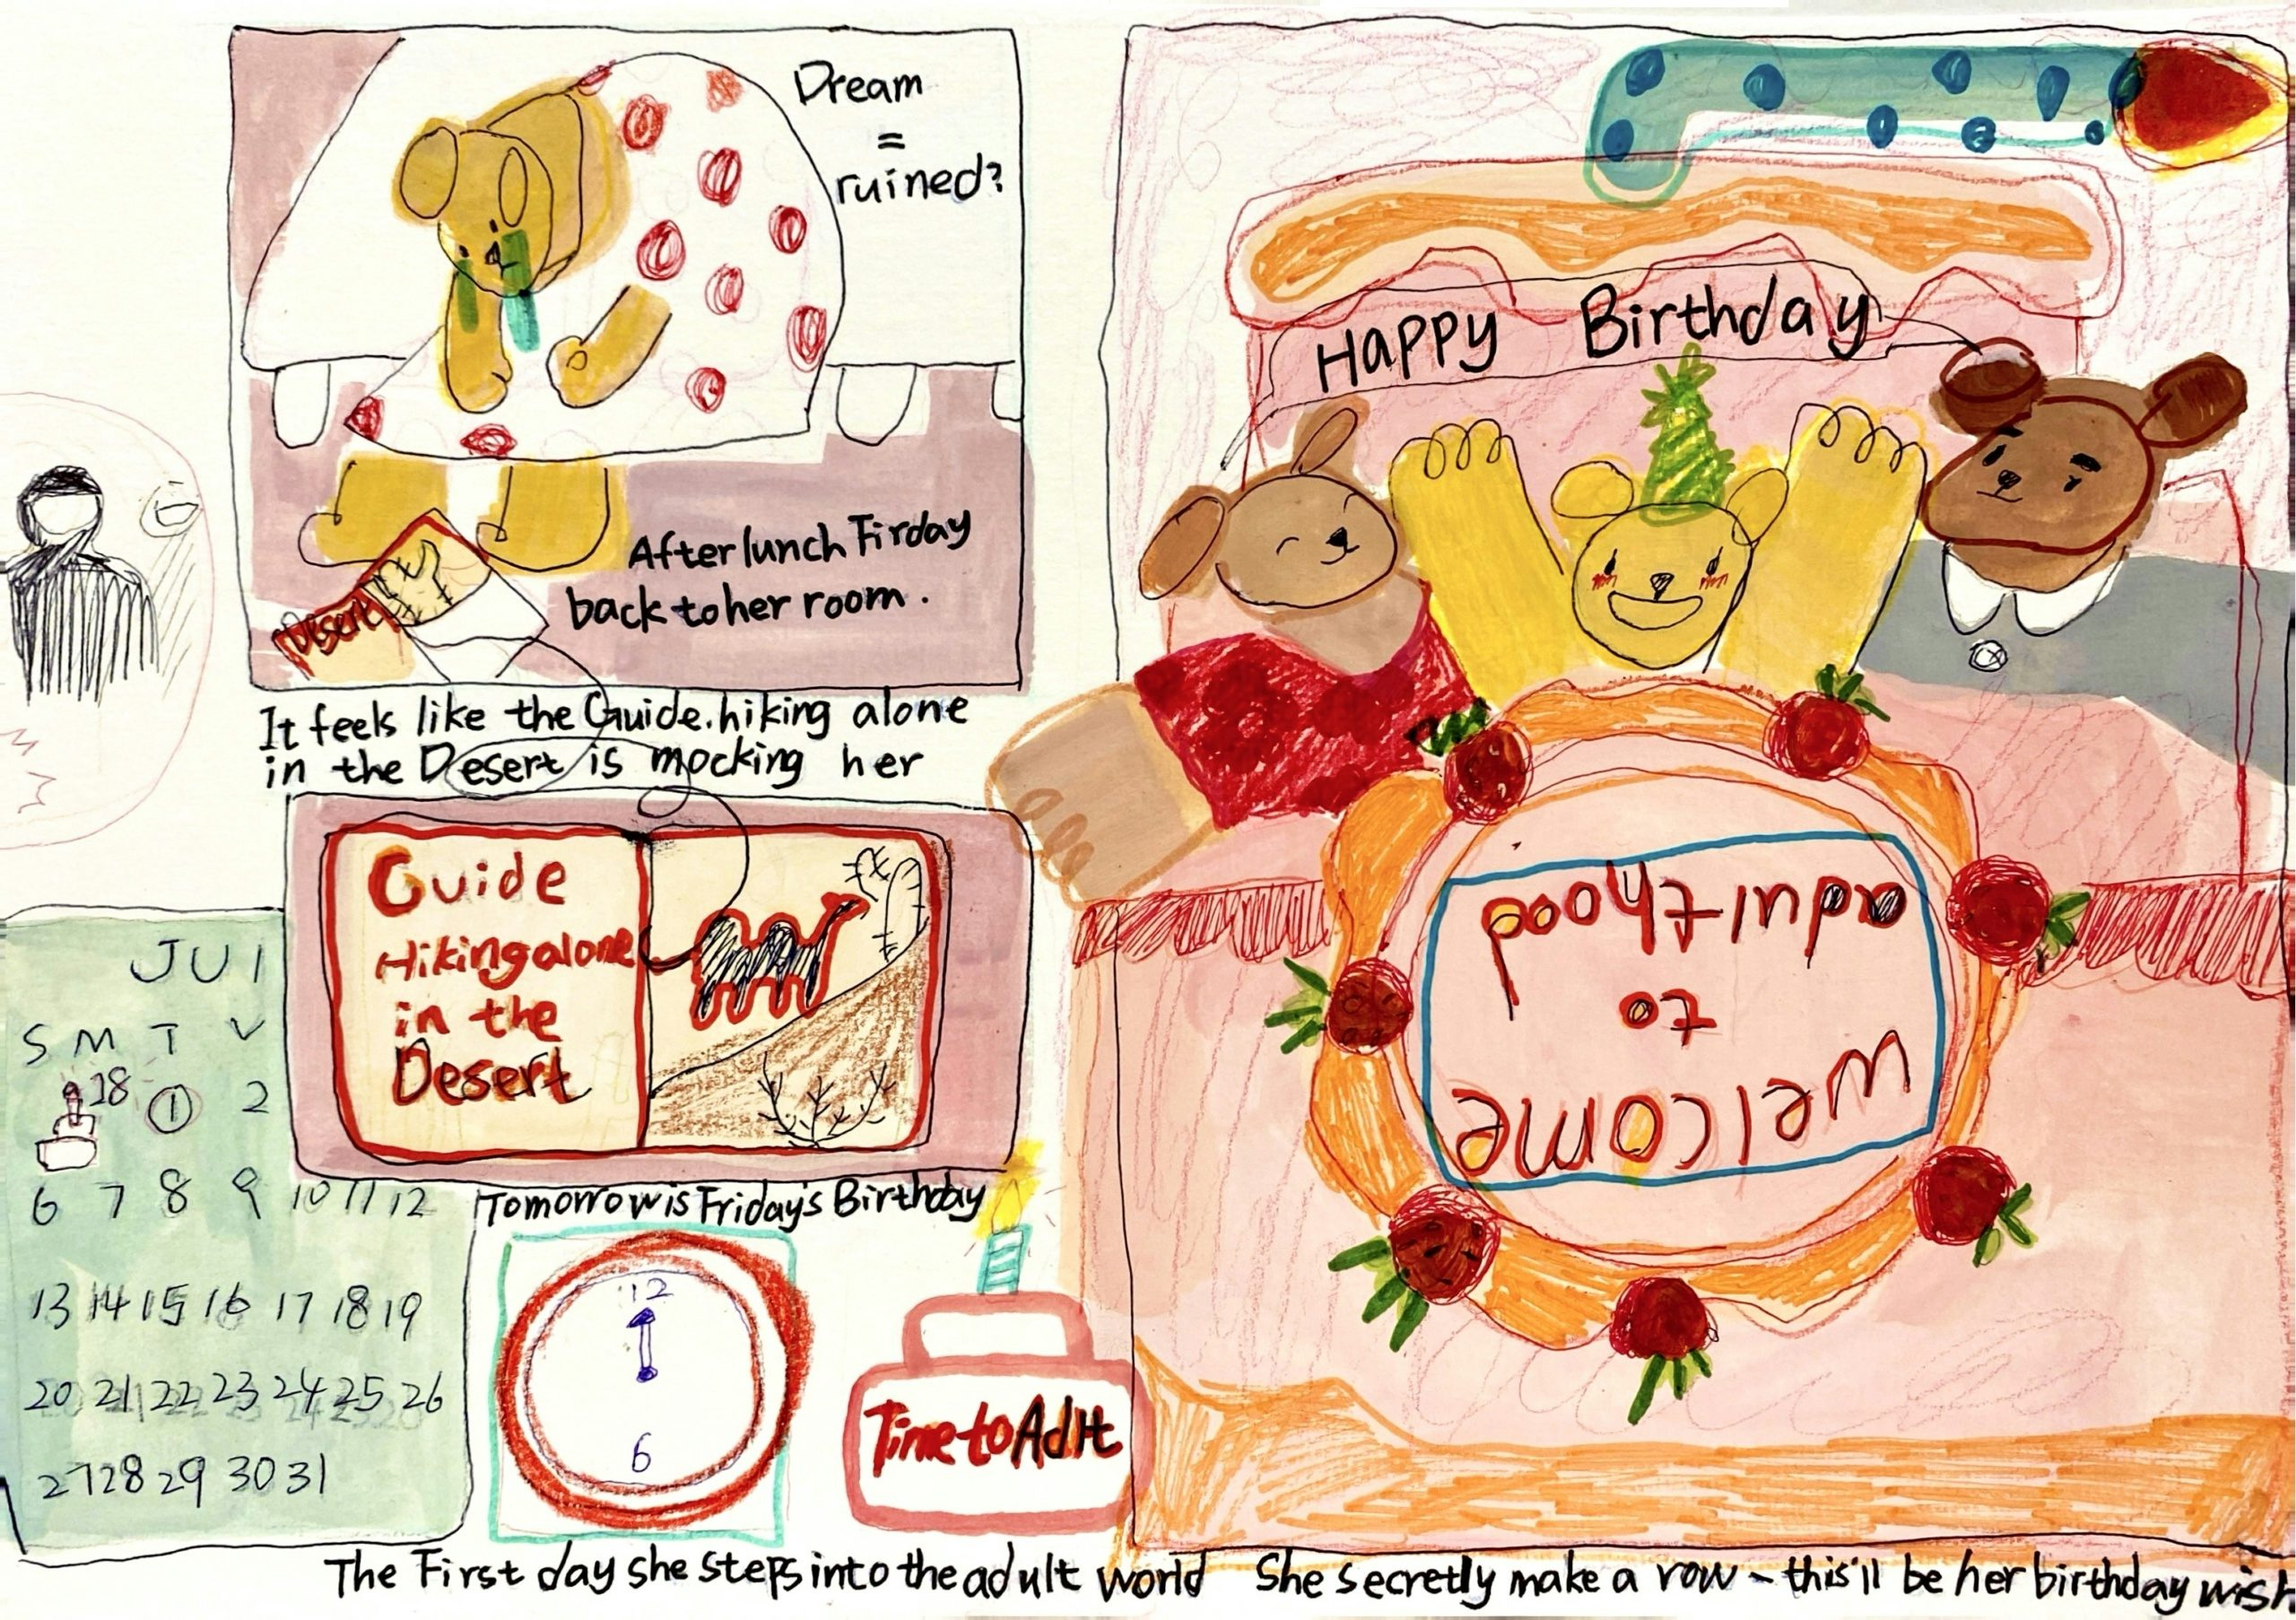 Dream
=
ruined?
After lunch Firday
back to her room.
Desert
It feels like the Guide.hiking alone
in the Desert is mocking her
Guide
Hiking alone
in the
Desert
JUl
S M T V
18 1 2
6 7 8 9 10 11 12
13 14 15 16 17 18 19
20 21 22 23 24 25 26
27 28 29 30 31
Tomorrow is Friday's Birthday
12
6
Time to Adlt
The First day she steps into the adult world
Happy Birthday
welcome
to
adulthood
She secretly make a row - this'll be her birthday wish